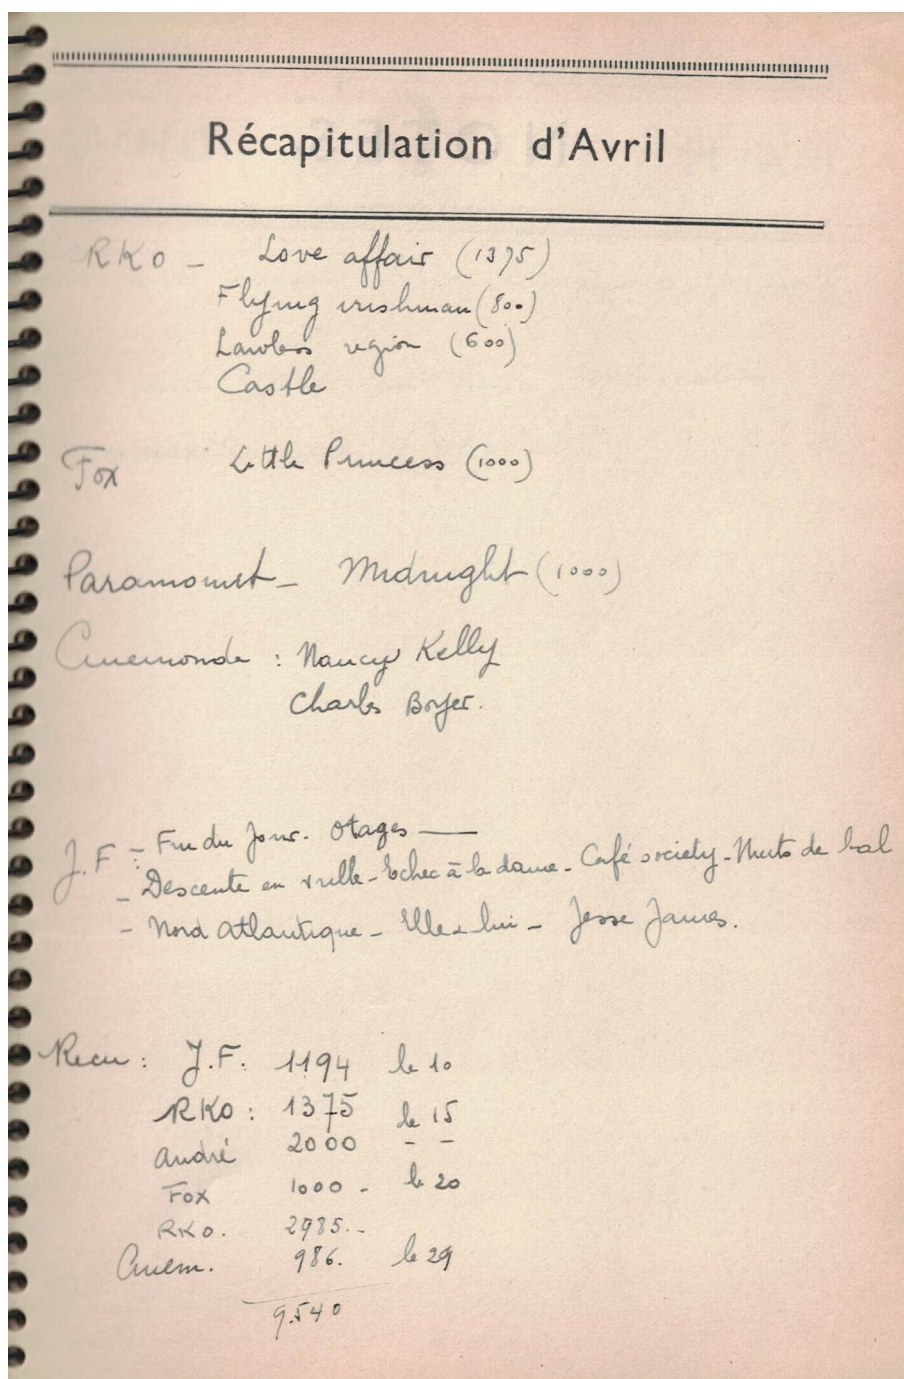 Récapitulation d'Avril
RKO - Love affair (1375)
Flying irishman (800)
Lawless region (600)
Castle
Fox Little Princess (1000)
Paramount - Midnight (1000)
Cinemonde : Nancy Kelly
Charles Boyer.
J.F : - Fin du Jour. Otages —
- Descente en ville - Echec à la dame - Café society - Nuits de bal
- Nord Atlantique - Elle & lui - Jesse James.
Recu : J.F. 1194 le 10
RKO : 1375 le 15
André 2000 - -
Fox 1000 - le 20
RKO. 2985.-
Cinem. 986. le 29
9.540